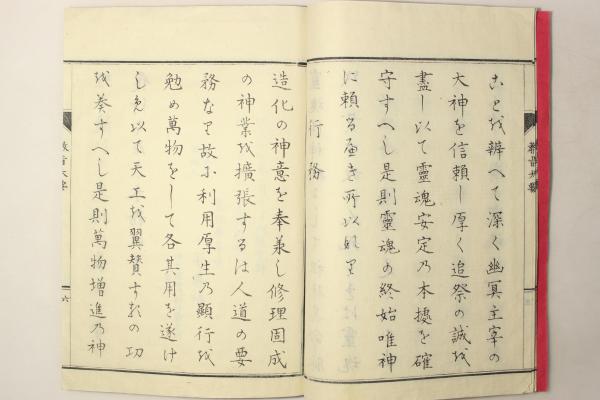 ことを辨へて深く幽冥主宰の
大神を信頼し厚く追祭の誠を
盡し以て靈魂安定乃本據を確
守すへし是則靈魂の終始唯神
に頼る所以なり
行務
造化の神意を奉兼し修理固成
の神業を擴張するは人道の要
務なり故に利用厚生乃顯行を
勉め萬物をして各其用を遂け
しめ以て天工を翼賛するの功
を奏すへし是則萬物增進乃神
教旨大要
六